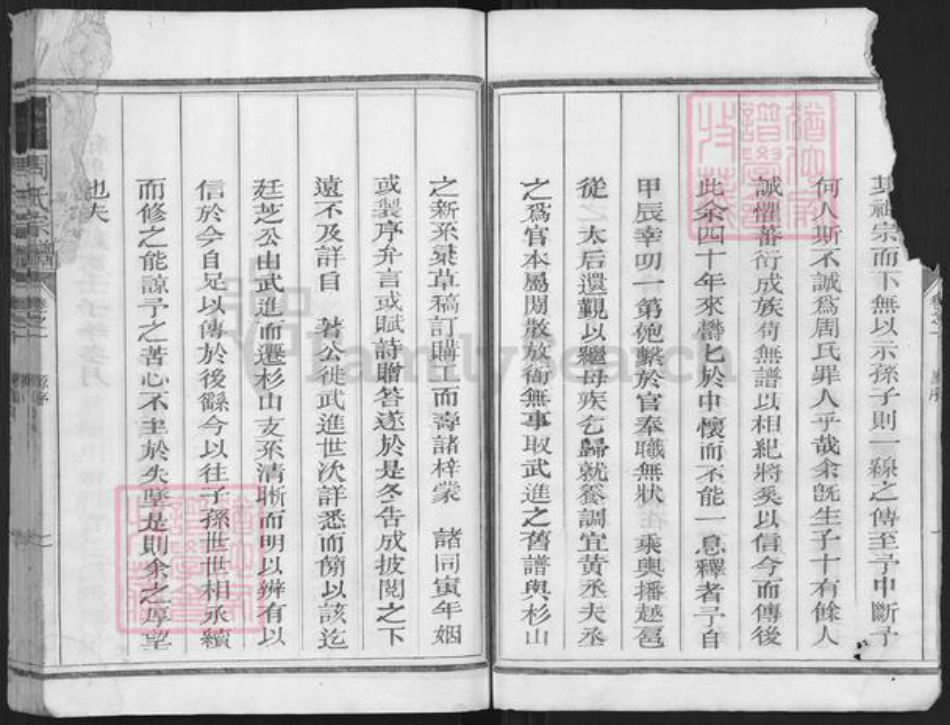 其祖宗而下無以示孫子則一綫之傳至予中斷予
何人斯不誠為周氏罪人乎哉余既生子十有餘人
誠懼蕃衍成族苟無譜以相紀將奚以信今而傳後
此余四十年來鬱匕於中懷而不能一息釋者予自
甲辰幸叨一第匏繫於官奉職無狀 乘輿播越邕
從 太后還覲以繼母疾乞歸就養調宜黃丞夫丞
之為官本屬閒散放衙無事取武進之舊譜與杉山
之新系彚草稿訂購工而壽諸梓蒙 諸同寅年姻
或製序弁言或賦詩贈答遂於是冬告成披閱之下
遠不及詳自 著公徙武進世次詳悉而簡以該迄
廷芝公由武進而遷杉山支系清晰而明以辨有以
信於今自足以傳於後繇今以往子孫世世相承續
而修之能諒予之苦心不至於失墜是則余之厚望
也夫
周氏宗譜
卷之一
FamilySearch